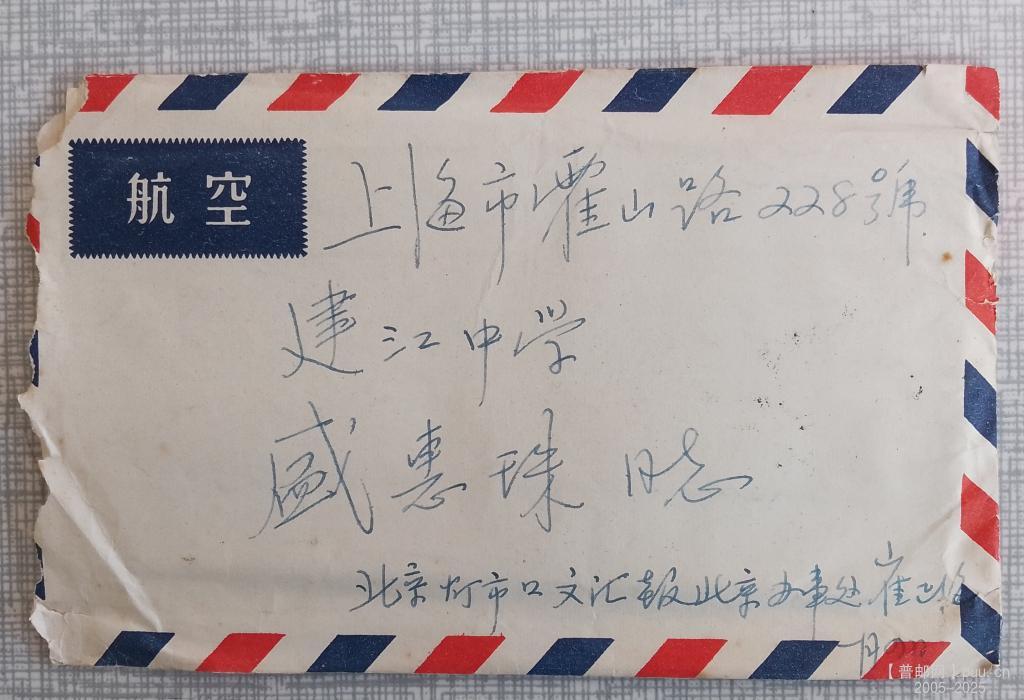 航空
上海市霍山路228號
建江中学
盛惠珠同志
北京灯市口文汇報北京办事处崔
【普邮网】puu.cn
2005-2025